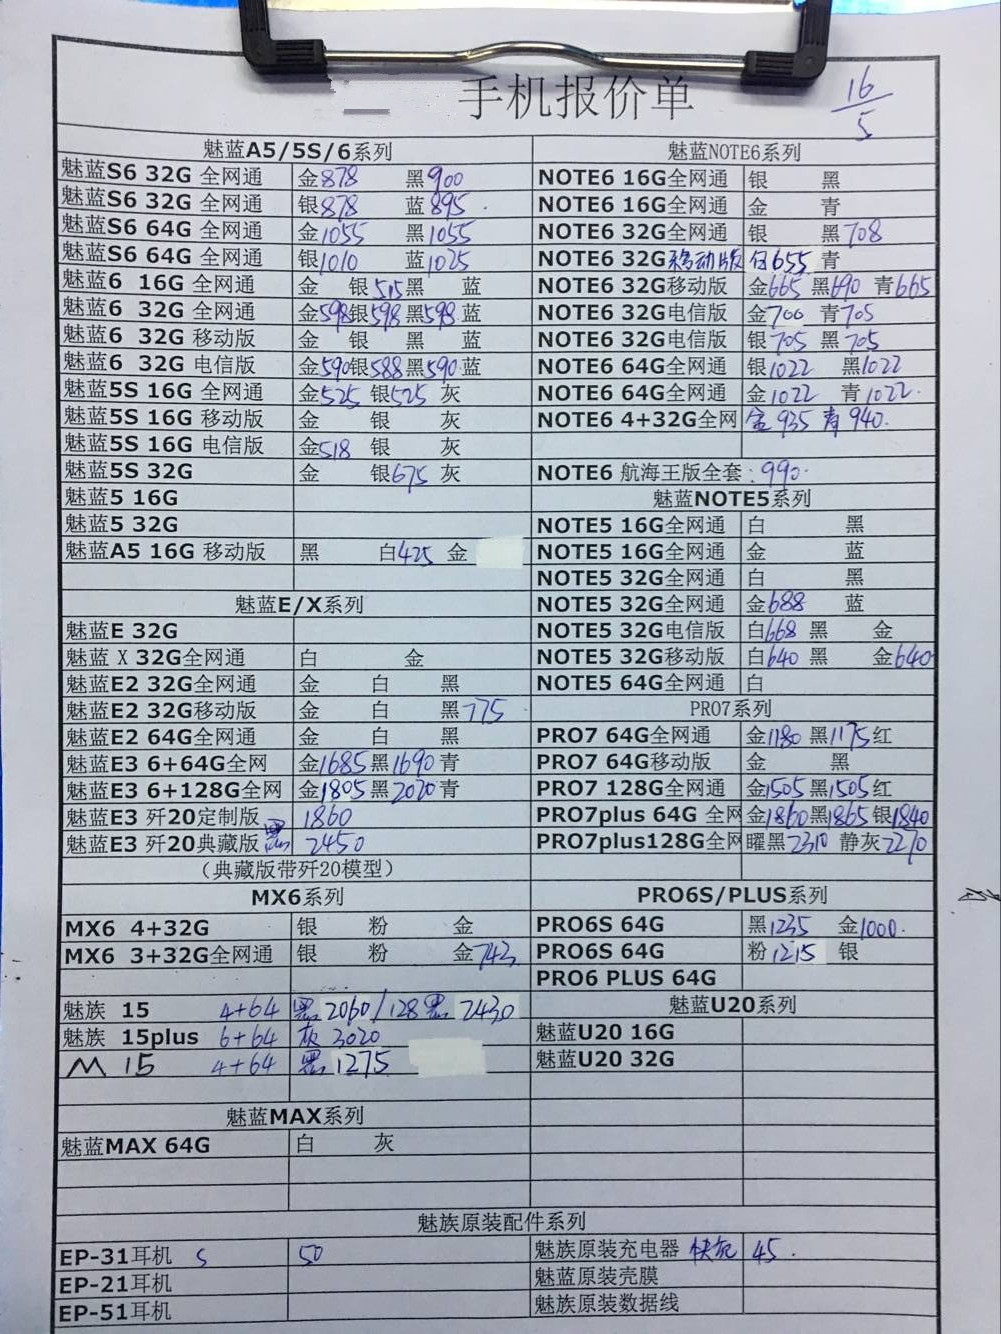 手机报价单
16/5
魅蓝A5/5S/6系列
魅蓝S6 32G 全网通 金878 黑900
魅蓝S6 32G 全网通 银878 蓝895
魅蓝S6 64G 全网通 金1055 黑1055
魅蓝S6 64G 全网通 银1010 蓝1025
魅蓝6 16G 全网通 金 银515黑 蓝
魅蓝6 32G 全网通 金598银598黑598蓝
魅蓝6 32G 移动版 金 银 黑 蓝
魅蓝6 32G 电信版 金590银588黑590蓝
魅蓝5S 16G 全网通 金525 银525 灰
魅蓝5S 16G 移动版 金 银 灰
魅蓝5S 16G 电信版 金518 银 灰
魅蓝5S 32G 金 银675 灰
魅蓝5 16G
魅蓝5 32G
魅蓝A5 16G 移动版 黑 白425 金
魅蓝E/X系列
魅蓝E 32G
魅蓝 X 32G全网通 白 金
魅蓝E2 32G全网通 金 白 黑
魅蓝E2 32G移动版 金 白 黑775
魅蓝E2 64G全网通 金 白 黑
魅蓝E3 6+64G全网 金1685黑1690青
魅蓝E3 6+128G全网 金1805黑2020青
魅蓝E3 歼20定制版 1860
魅蓝E3 歼20典藏版黑 2450
（典藏版带歼20模型）
MX6系列
MX6 4+32G 银 粉 金
MX6 3+32G全网通 银 粉 金743
魅族 15 4+64 黑2060/128黑 2430
魅族 15plus 6+64 灰 3020
M 15 4+64 黑1275
魅蓝MAX系列
魅蓝MAX 64G 白 灰
魅蓝NOTE6系列
NOTE6 16G全网通 银 黑
NOTE6 16G全网通 金 青
NOTE6 32G全网通 银 黑708
NOTE6 32G移动版 655 青
NOTE6 32G移动版 金665 黑690 青665
NOTE6 32G电信版 金700 青705
NOTE6 32G电信版 银705 黑705
NOTE6 64G全网通 银1022 黑1022
NOTE6 64G全网通 金1022 青1022
NOTE6 4+32G全网 金935 青940
NOTE6 航海王版全套:990
魅蓝NOTE5系列
NOTE5 16G全网通 白 黑
NOTE5 16G全网通 金 蓝
NOTE5 32G全网通 白 黑
NOTE5 32G全网通 金688 蓝
NOTE5 32G电信版 白668 黑 金
NOTE5 32G移动版 白640 黑 金640
NOTE5 64G全网通 白
PRO7系列
PRO7 64G全网通 金1180 黑1175红
PRO7 64G移动版 金 黑
PRO7 128G全网通 金1505黑1505红
PRO7plus 64G 全网 金1860黑1865 银1840
PRO7plus128G全网 曜黑2310 静灰2270
PRO6S/PLUS系列
PRO6S 64G 黑1235 金1000
PRO6S 64G 粉1215 银
PRO6 PLUS 64G
魅蓝U20系列
魅蓝U20 16G
魅蓝U20 32G
魅族原装配件系列
EP-31耳机 S 50
EP-21耳机
EP-51耳机
魅族原装充电器 快充 45
魅蓝原装壳膜
魅族原装数据线